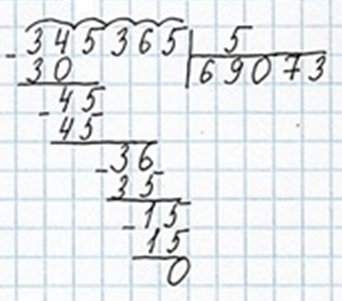 - 345365 5
30 69073
- 45
45
- 36
35
- 15
15
0